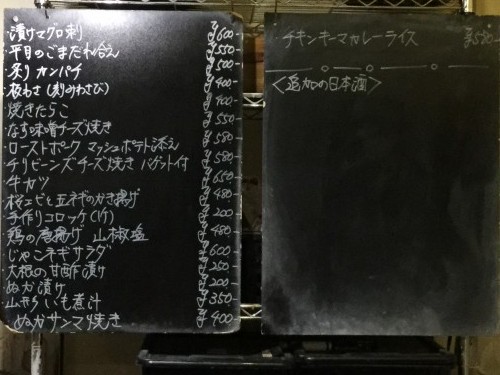 ・漬けマグロ刺 ¥600-
・平目のごまだれ和え ¥550
・炙りカンパチ ¥500
・板わさ(刻みわさび) ¥400
・焼きたらこ ¥400-
・なす味噌チーズ焼き ¥550
・ローストポーク マッシュポテト添え ¥580-
・チリビーンズチーズ焼き バゲット付 ¥580-
・牛カツ ¥650
・桜エビと玉ネギのかき揚げ ¥480
・手作りコロッケ(1ケ) ¥200
・鶏の唐揚げ 山椒塩 ¥480
・じゃこネギサラダ ¥600
・大根の甘酢漬け ¥250
・ぬか漬け ¥200
・山形いも煮汁 ¥350
ぬかサンマ焼き ¥400
チキンキーマカレーライス ¥580-
<追加の日本酒>